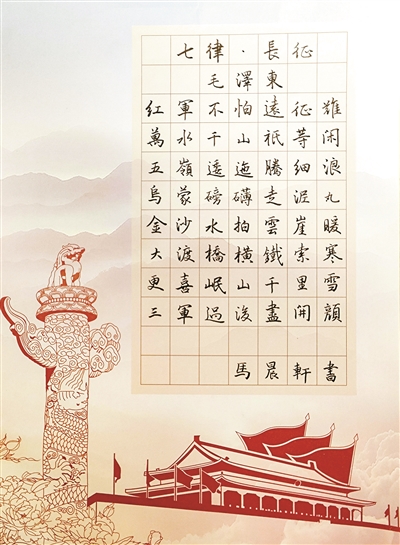 七律·長征
毛澤東
紅軍不怕遠征難
萬水千山祇等闲
五嶺逶迤騰細浪
烏蒙磅礴走泥丸
金沙水拍雲崖暖
大渡橋橫鐵索寒
更喜岷山千里雪
三軍過後盡開顏
馬晨軒書